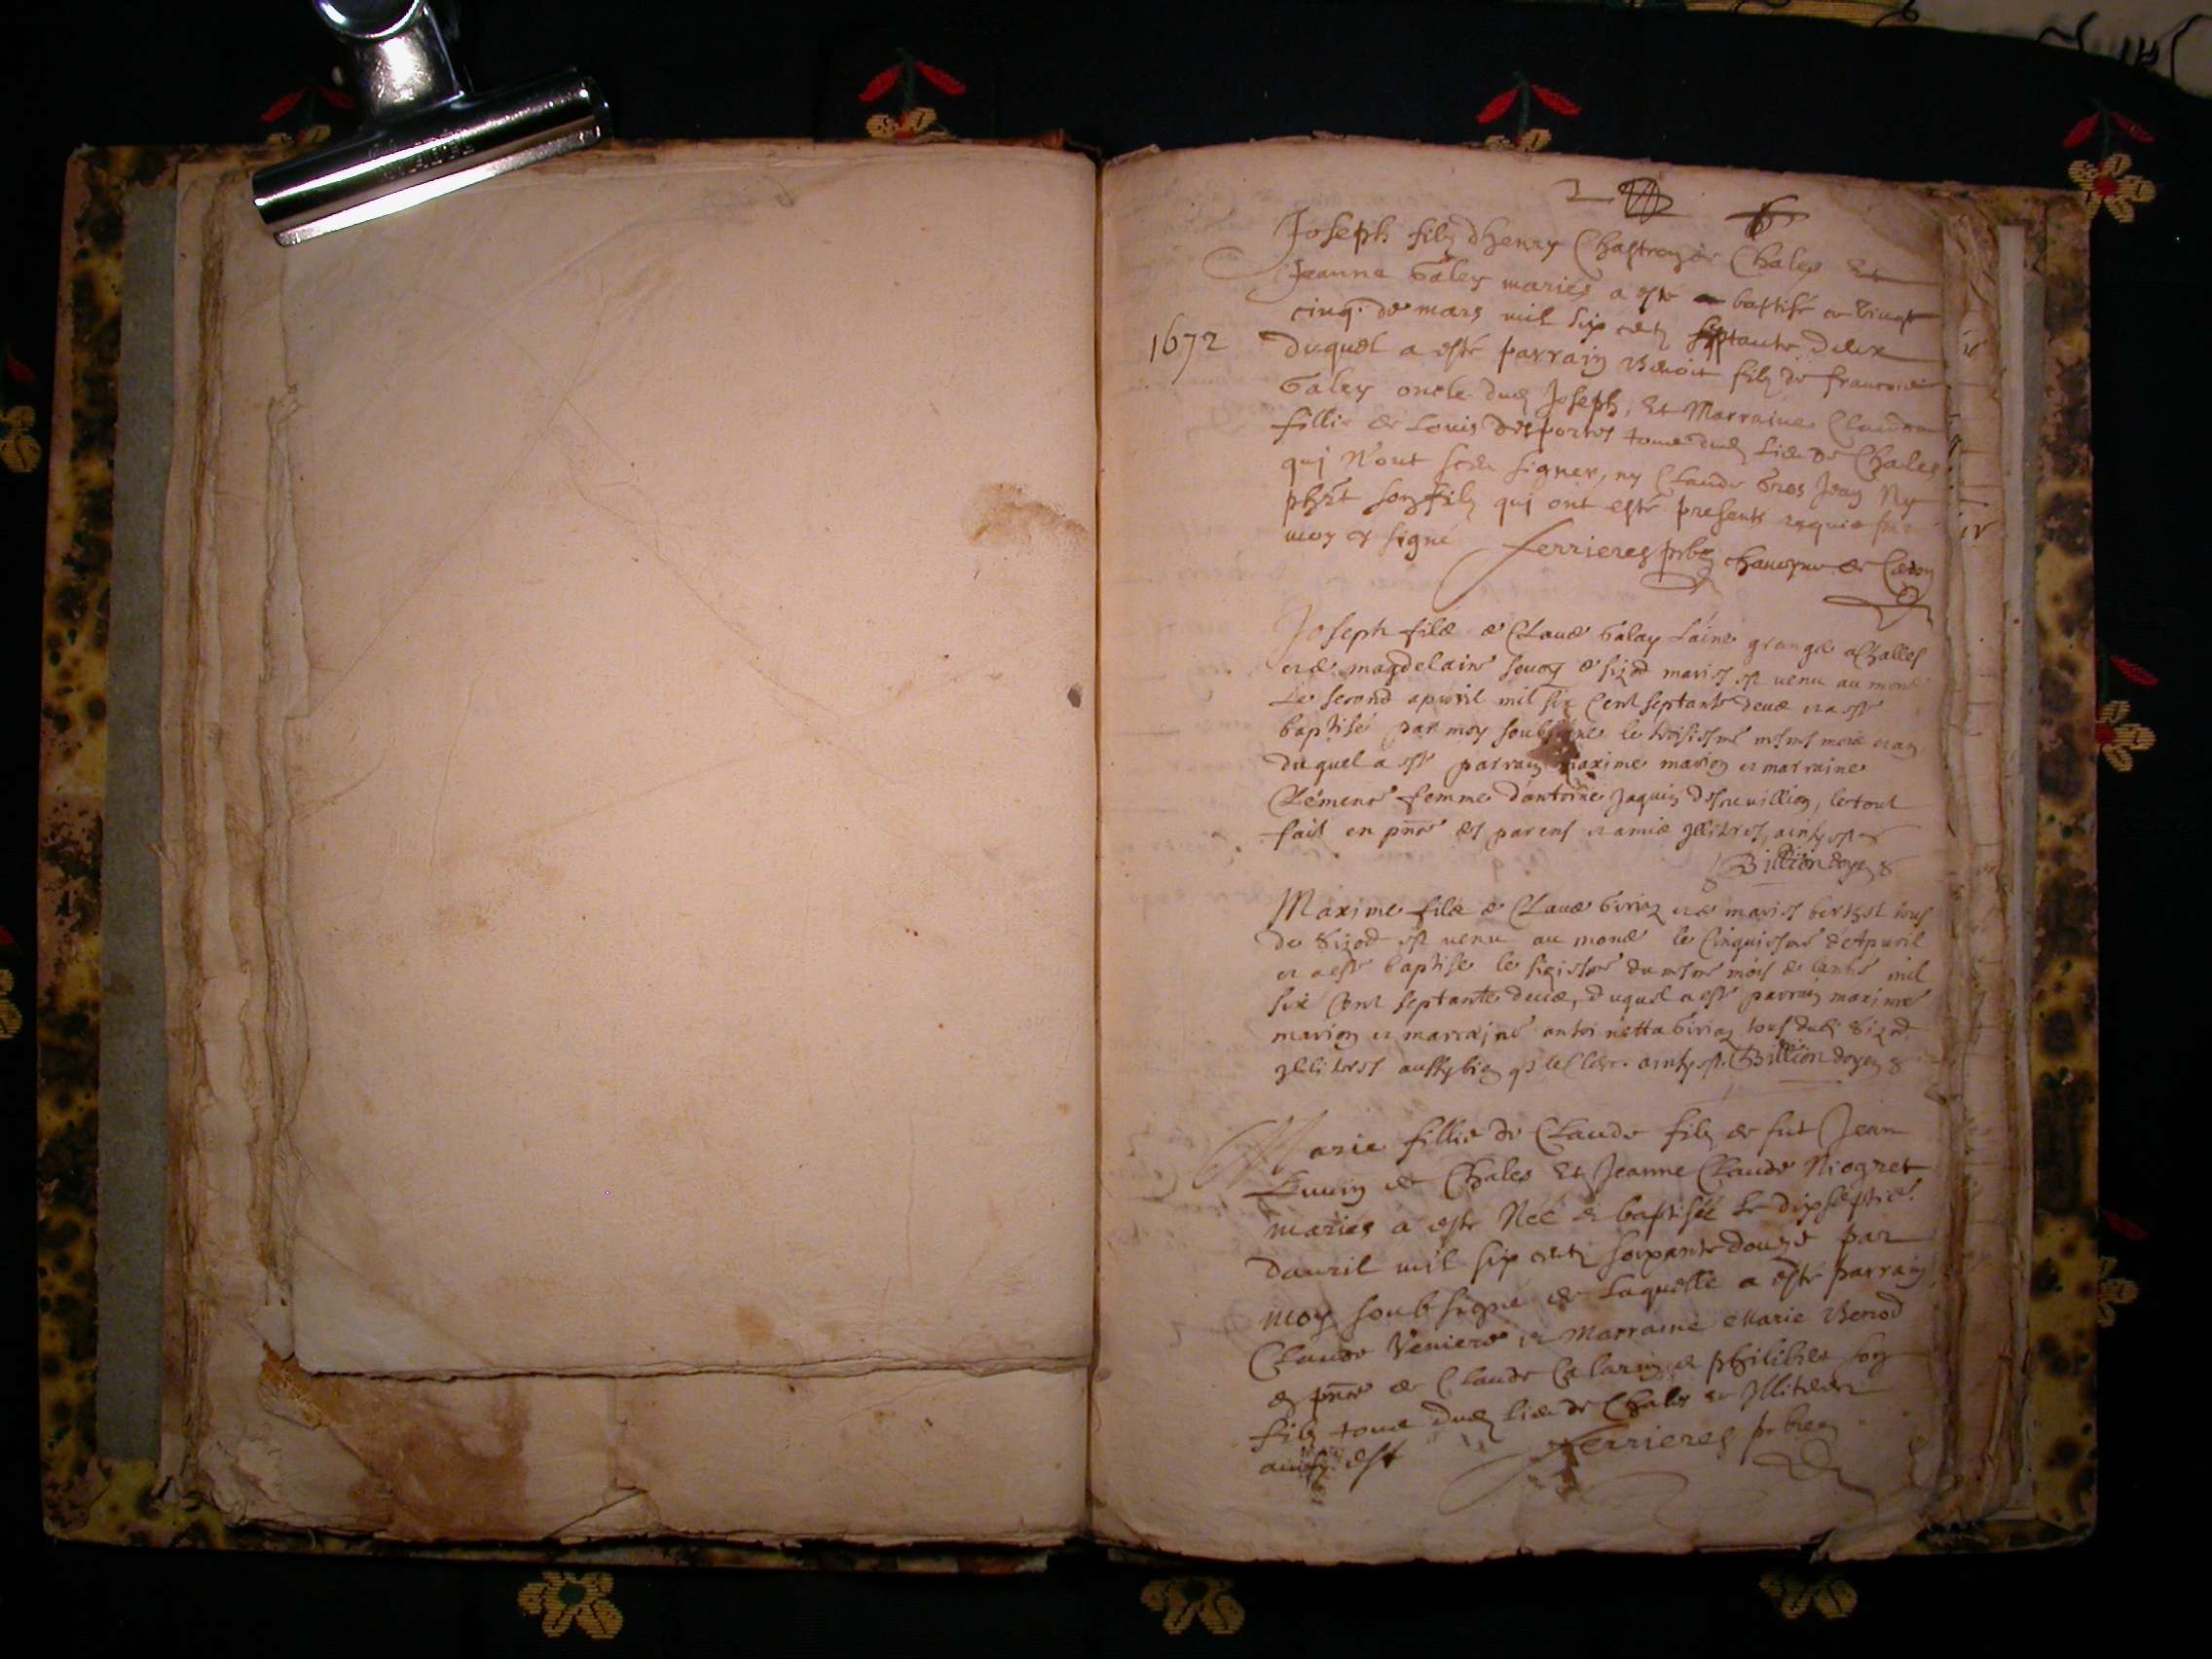 6
Joseph filz dhenry Chastron de Chales Et
Jeanne Galey mariés a esté baptisé ce vingt
cinq. de mars mil six centz septante deux
1672
duquel a esté parrain Benoit filz de francois
Galey oncle dud Joseph, Et Marraine Claudia
fillie de Louis desportes tous dud lieu de Chales
quj N'ont sceu signer, ny Claude Gros Jean Ny
son filz quj ont esté presents requis par
moy et signé ferrieres pbre chanoyne de
Joseph filz de Claude Galay Lainé grangé a Challes
et de magdelaine de sizod mariés est venu au monde
Le second apvril mil six Cent septante deux et a esté
baptisé par moy soubsigné le troisiesme mesme mois et an
duquel a esté parrain maxime marion et marraine
Clémence femme d'antoine Jaquin , le tout
fait en pnce des parens et amis illitres, ainsy est
Billion doyen
Maxime filz de Claude Giriaz et de marie tous
de Sizod est venu au monde le Cinquiesme d'Apvril
et a esté baptisé le sixiesme du mesme mois de lannée mil
six Cent septante deux, duquel a esté parrain maxime
marion et marrajne antoinetta Giriaz tous dudi Sizod
illitres aussy bien q le pere. ainsy est. Billion doyen
Marie fillie de Claude filz de fut Jean
de Chales Et Jeanne Claude Niogret
mariés a esté Née et baptisée Le dixseptie.
dauril mil six centz soixante douze par
moy soubsigné de Laquelle a esté parrain
Claude Veniere et Marraine Marie Benod
en pnce de Claude et philibert son
filz tous dud lieu de Chales et Illiteres
ainsy est ferrieres pbre